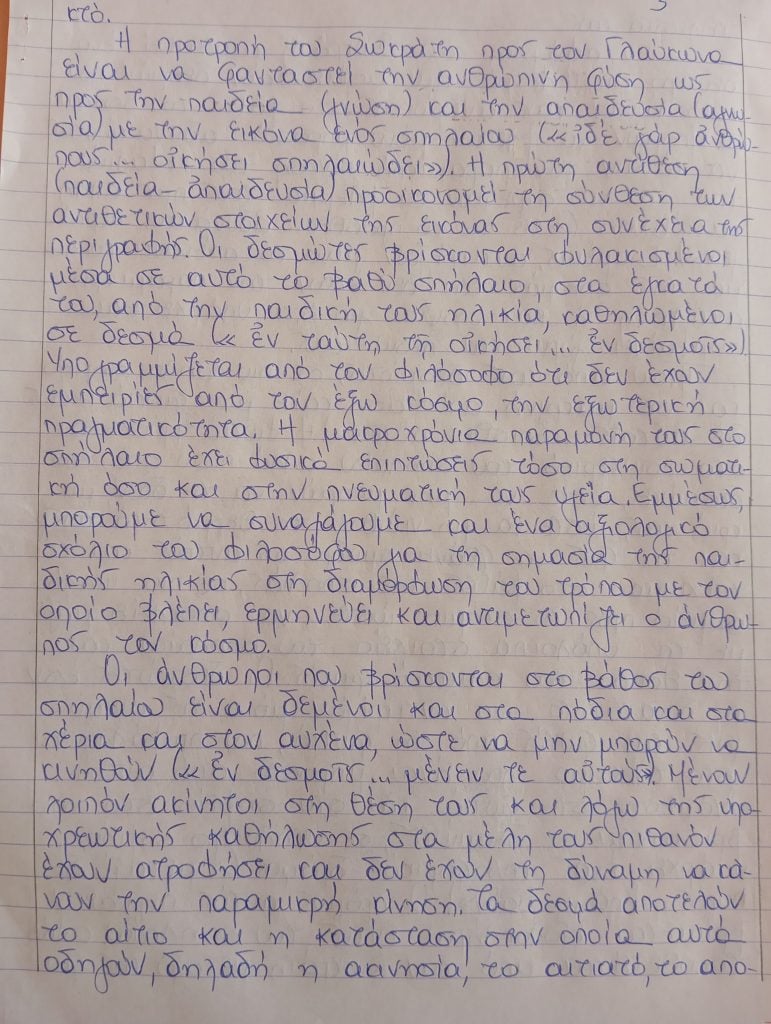 κτό.
Η προτροπή του Σωκράτη προς τον Γλαύκωνα
είναι να φανταστεί την ανθρώπινη φύση ως
προς την παιδεία (γνώση) και την απαιδευσία (αγνω-
σία) με την εικόνα ενός σπηλαίου («ἰδέ γάρ ἀνθρώ-
πους... οἰκήσει σπηλαιώδει»). Η πρώτη αντίθεση
(παιδεία - ἀπαιδευσία) προοικονομεί τη σύνθεση των
αντιθετικών στοιχείων της εικόνας στη συνέχεια της
περιγραφής. Οι δεσμώτες βρίσκονται φυλακισμένοι
μέσα σε αυτό το βαθύ σπήλαιο, στα έγκατά
του, από την παιδική τους ηλικία, καθηλωμένοι
σε δεσμά («ἐν ταύτῃ τῇ οἰκήσει... ἐν δεσμοῖς»)
Υπογραμμίζεται από τον φιλόσοφο ότι δεν έχουν
εμπειρίες από τον έξω κόσμο, την εξωτερική
πραγματικότητα. Η μακροχρόνια παραμονή τους στο
σπήλαιο έχει φυσικά επιπτώσεις τόσο στη σωματι-
κή όσο και στην πνευματική τους υγεία. Εμμέσως,
μπορούμε να συναγάγουμε και ένα αξιόλογο
σχόλιο του φιλοσόφου για τη σημασία της παι-
δικής ηλικίας στη διαμόρφωση του τρόπου με τον
οποίο βλέπει, ερμηνεύει και αντιμετωπίζει ο άνθρω-
πος τον κόσμο.
Οι άνθρωποι που βρίσκονται στο βάθος του
σπηλαίου είναι δεμένοι και στα πόδια και στα
χέρια και στον αυχένα, ώστε να μην μπορούν να
κινηθούν («ἐν δεσμοῖς... μένειν τε αὐτούς»). Μένουν
λοιπόν ακίνητοι στη θέση τους και λόγω της υπο-
χρεωτικής καθήλωσης στα μέλη τους πιθανόν
έχουν ατροφήσει και δεν έχουν τη δύναμη να κά-
νουν την παραμικρή κίνηση. Τα δεσμά αποτελούν
το αίτιο και η κατάσταση στην οποία αυτά
οδηγούν, δηλαδή η ακινησία, το αιτιατό, το απο-